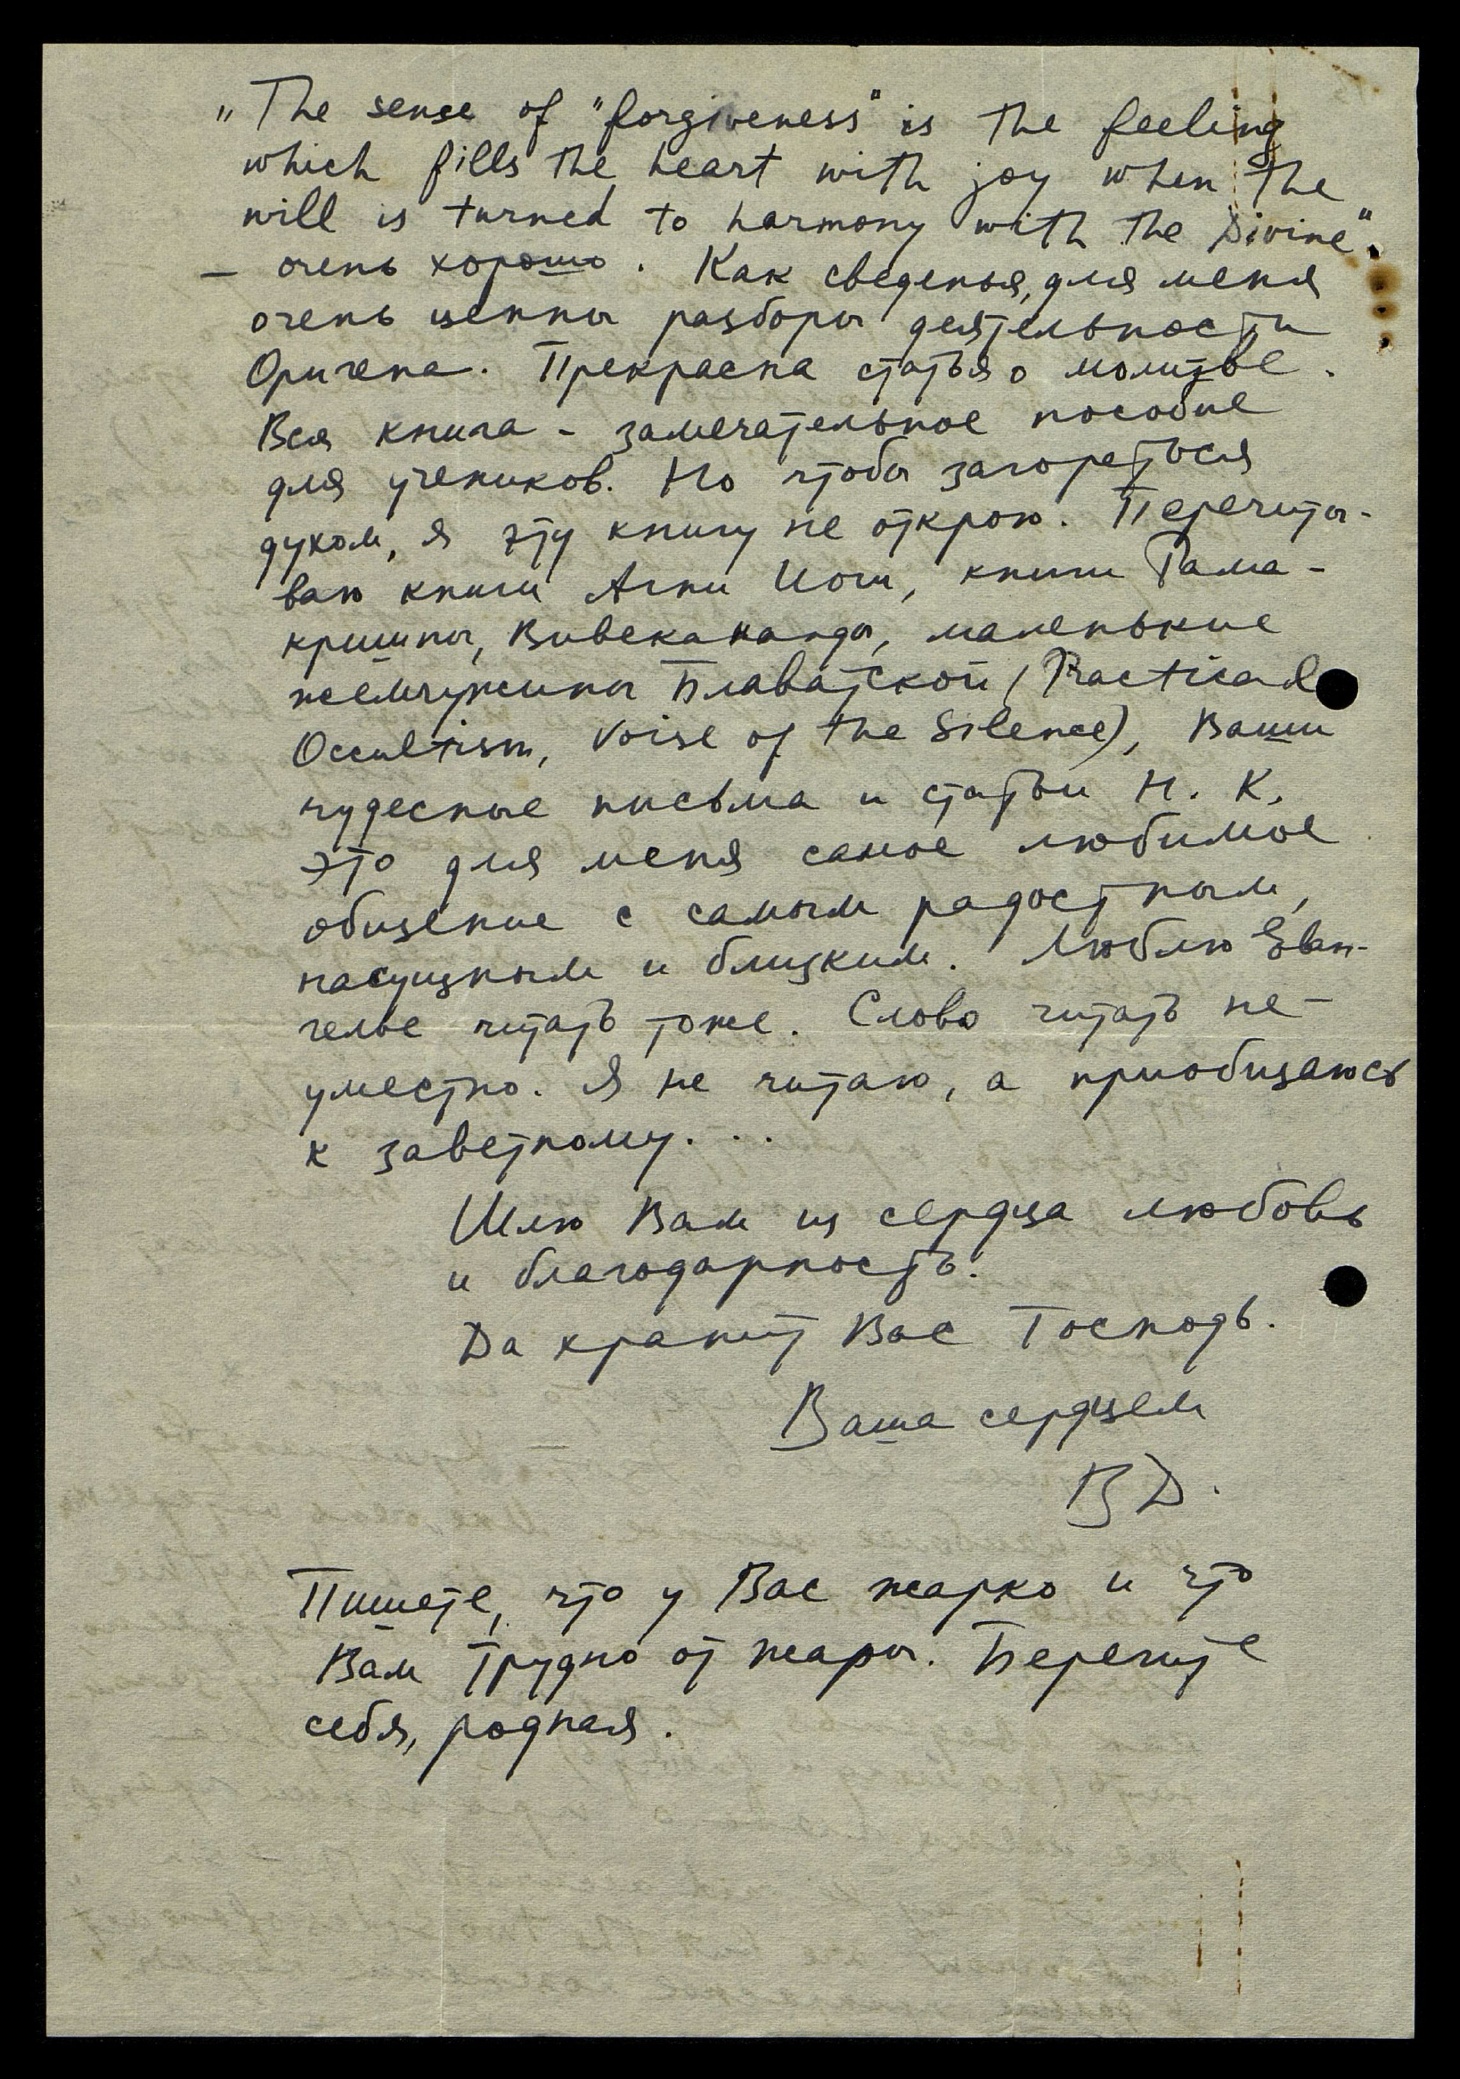 „The sense of "forgiveness" is the feeling
which fills the heart with joy when the
will is turned to harmony with the Divine".
– очень хорошо. Как сведенья, для меня
очень ценны разборы деятельности
Оригена. Прекрасна статья о молитве.
Вся книга – замечательное пособие
для учеников. Но чтобы загореться
духом, я эту книгу не открою. Перечиты-
ваю книги Агни Йоги, книги Рама-
кришны, Вивекананды, маленькие
жемчужины Блаватской (Practical
Occultism, Voise of the Silence), Ваши
чудесные письма и статьи Н. К.
это для меня самое любимое
общение с самым радостным,
насущным и близким. Люблю Еван-
гелье читать тоже. Слово читать не-
уместно. Я не читаю, а приобщаюсь
к заветному...
Шлю Вам из сердца любовь
и благодарность.
Да хранит Вас Господь.
Ваша сердцем
В Д.
Пишете, что у Вас жарко и что
Вам трудно от жары. Берегите
себя, родная.